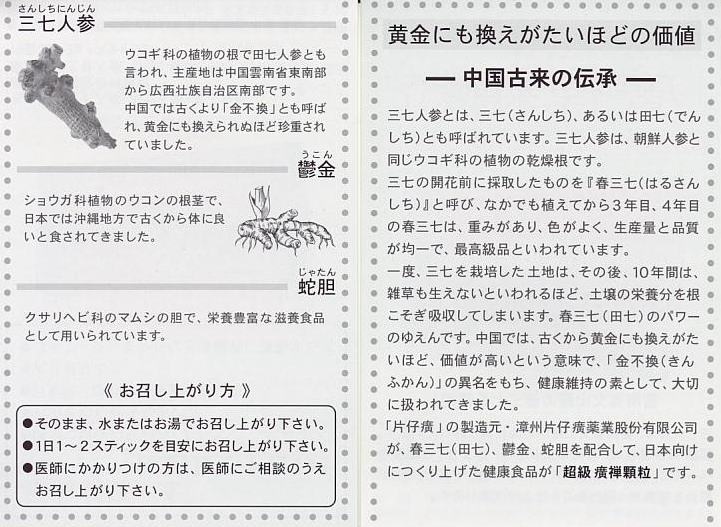 さんしちにんじん
三七人参
ウコギ科の植物の根で田七人参とも
言われ、主産地は中国雲南省東南部
から広西壮族自治区南部です。
中国では古くより「金不換」とも呼ば
れ、黄金にも換えられぬほど珍重され
ていました。
うこん
鬱金
ショウガ科植物のウコンの根茎で、
日本では沖縄地方で古くから体に良
いと食されてきました。
じゃたん
蛇胆
クサリヘビ科のマムシの胆で、栄養豊富な滋養食品
として用いられています。
《 お召し上がり方 》
●そのまま、水またはお湯でお召し上がり下さい。
●1日1〜2スティックを目安にお召し上がり下さい。
●医師にかかりつけの方は、医師にご相談のうえ
お召し上がり下さい。
黄金にも換えがたいほどの価値
― 中国古来の伝承 ―
三七人参とは、三七(さんしち)、あるいは田七(でん
しち)とも呼ばれています。三七人参は、朝鮮人参と
同じウコギ科の植物の乾燥根です。
三七の開花前に採取したものを『春三七(はるさん
しち)』と呼び、なかでも植えてから3年目、4年目
の春三七は、重みがあり、色がよく、生産量と品質
が均一で、最高級品といわれています。
一度、三七を栽培した土地は、その後、10年間は、
雑草も生えないといわれるほど、土壌の栄養分を根
こそぎ吸収してしまいます。春三七(田七)のパワー
のゆえんです。中国では、古くから黄金にも換えがた
いほど、価値が高いという意味で、「金不換(きん
ふかん)」の異名をもち、健康維持の素として、大切
に扱われてきました。
「片仔癀」の製造元・漳州片仔癀薬業股份有限公司
が、春三七(田七)、鬱金、蛇胆を配合して、日本向け
につくり上げた健康食品が「超級 癀禅顆粒」です。